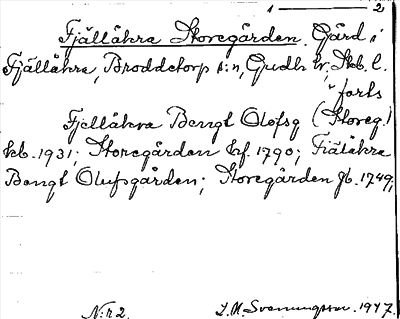 1 — 2
Fjällåkra Storegården. Gård i
Fjällåkra, Broddetorp s:n, Gudh. hr, Skb. l.
forts
Fjellåkra Bengt Olofsg (Storeg.)
kb. 1931; Storegården hrf. 1790; Fiälåkra
Bengt Olufsgården; Storegården jb. 1749;
N:r 2. L. M. Svenungsson. 1947.